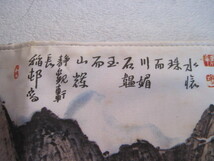 水懷
珠
而
川媚
石韞
玉
而
山輝
靜觀軒
長